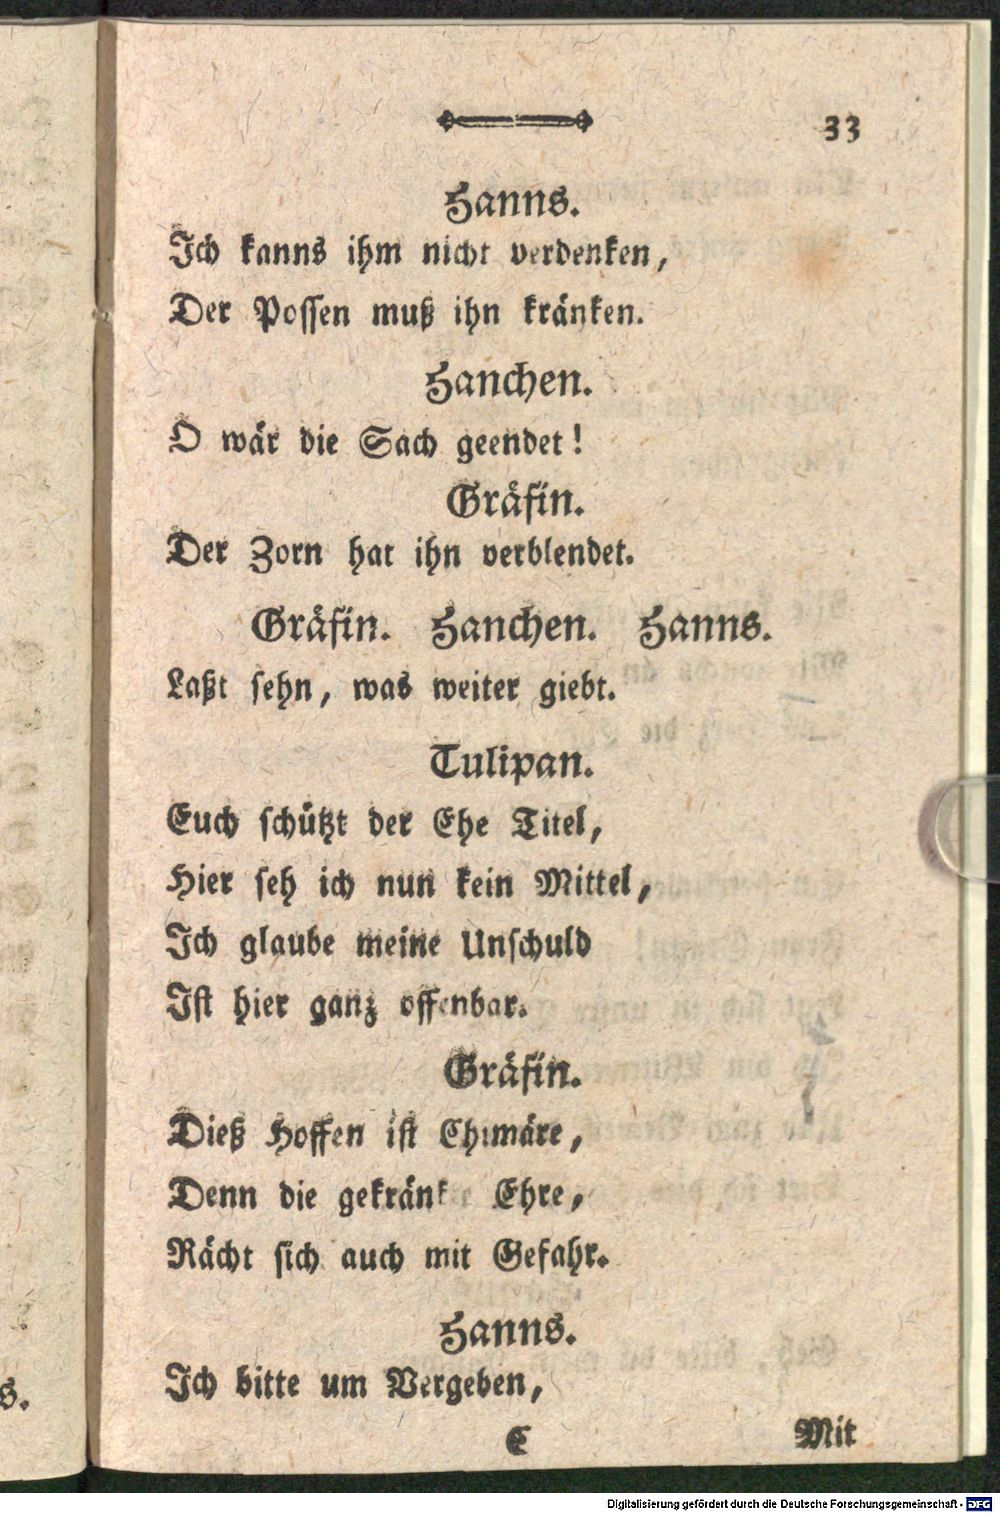 33
Hanns.
Ich kanns ihm nicht verdenken,
Der Possen muß ihn kränken.
Hanchen.
O wär die Sach geendet!
Gräfin.
Der Zorn hat ihn verblendet.
Gräfin. Hanchen. Hanns.
Laßt sehn, was weiter giebt.
Tulipan.
Euch schützt der Ehe Titel,
Hier seh ich nun kein Mittel,
Ich glaube meine Unschuld
Ist hier ganz offenbar.
Gräfin.
Dieß Hoffen ist Chimäre,
Denn die gekränkte Ehre,
Rächt sich auch mit Gefahr.
Hanns.
Ich bitte um Vergeben,
C
Mit
s.
Digitalisierung gefördert durch die Deutsche Forschungsgemeinschaft - DFG